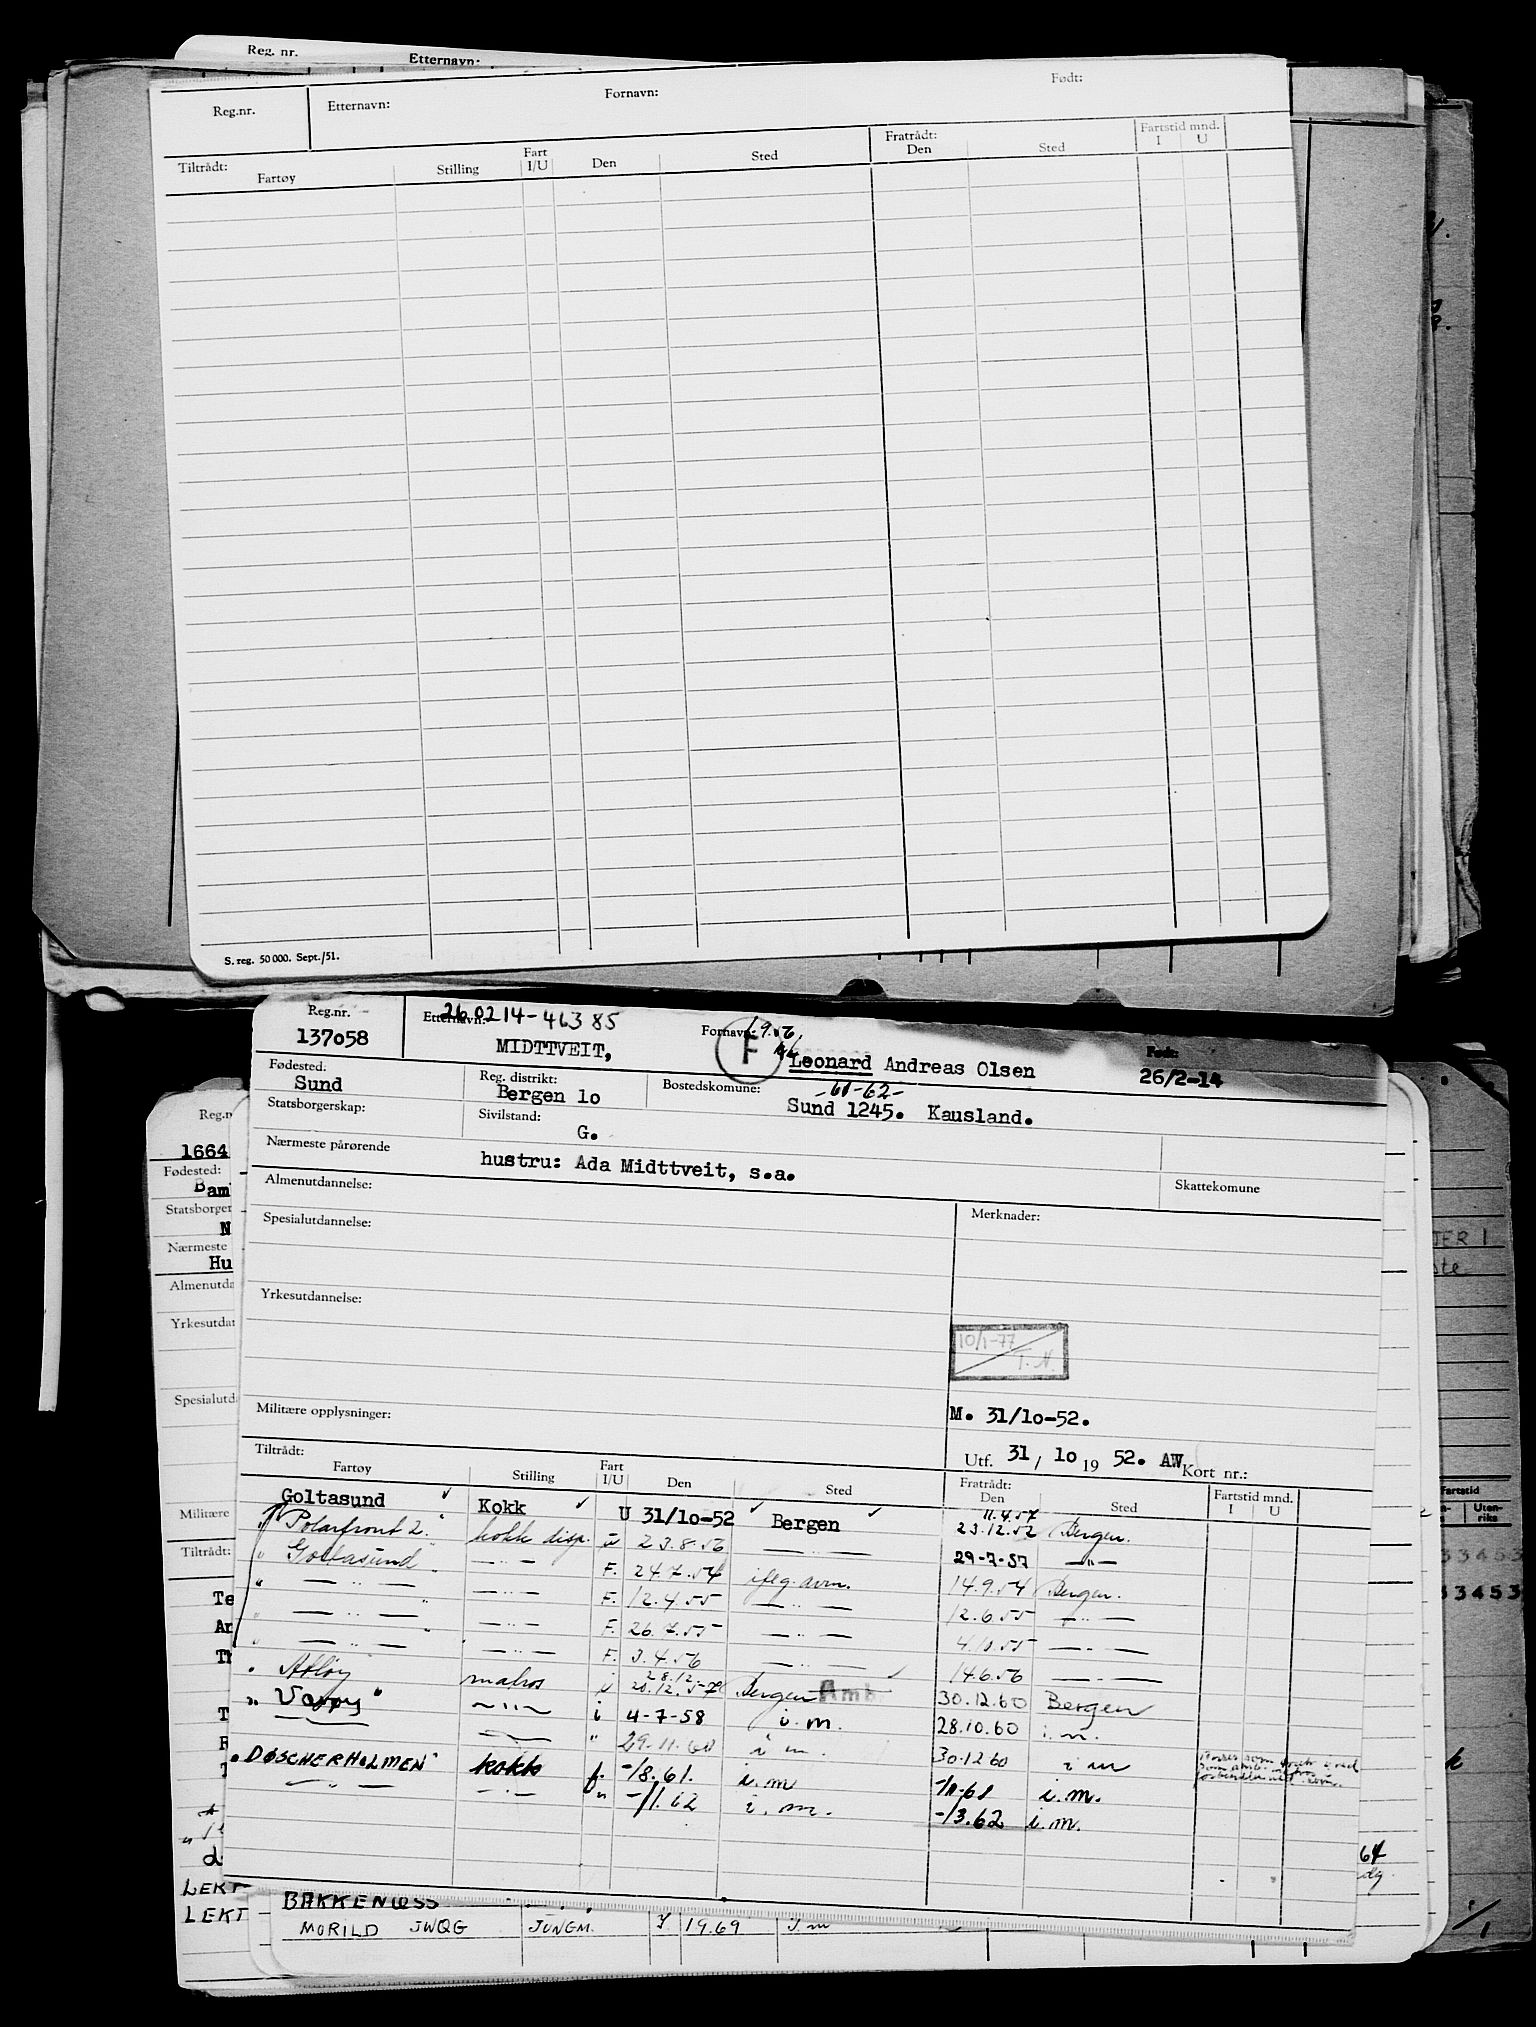 Reg. nr.
Etternavn:
Reg.nr.
Etternavn:
Fornavn:
Født:
Tiltrådt:
Fartøy
Stilling
Fart I/U
Den
Sted
Fratrådt:
Den
Sted
Fartstid mnd.
I U
S. reg. 50 000. Sept./51.
Reg.nr. 137058
Etternavn: 260214-46385
MIDTTVEIT,
Fornavn: 1.9.56
F
Leonard Andreas Olsen
Født: 26/2-14
Fødested. Sund
Reg. distrikt: Bergen 10
Bostedskomune: -61-62-
Sund 1245. Kausland.
Statsborgerskap:
Sivilstand: G.
Nærmeste pårørende
hustru: Ada Midttveit, s.a.
Skattekomune
Almenutdannelse:
Spesialutdannelse:
Merknader:
Yrkesutdannelse:
10/1-77
T.N.
Militære opplysninger:
M. 31/10-52.
Utf. 31/10 1952. AW
Kort nr.:
Tiltrådt:
Fartøy
Stilling
Fart I/U
Den
Sted
Fratrådt:
Den
Sted
Fartstid mnd.
I U
Goltasund Kokk U 31/10-52 Bergen 23.12.52 Bergen.
11.4.57
" Polarfront 2." kokk disp. u 23.8.56 — " — 29-7-57 — " —
" Goltasund " — " — F. 24.7.54 iflg. avm. 14.9.54 Bergen.
" — " — " — " — F. 12.4.55 — " — 12.6.55 — " —
" — " — " — " — F. 26.7.55 — " — 4.10.55 — " —
" — " — — " — F. 3.4.56 — " — 14.6.56 — " —
matros 28.12 20.12.57 Bergen Amb. 30.12.60 Bergen
— " — i 4-7-58 i.m. 28.10.60 i.m.
— " 29.11.60 i m. 30.12.60 i m
" DØSCHERHOLMEN" kokk f. -/8.61. i.m i.m.
— " — — " — " -/1.62 i.m. -/3.62 i.m.
BAKKENESS
MORILD JWQG JUNGM. 19.69 I.m
Reg.n
1664
Fødested:
Bam
Statsborger
N
Nærmeste
Hu
Almenutda
Yrkesutdan
Spesialutd
Militære
Tiltrådt:
Te
An
LEKT
LEKT
TER 1
Fartstid
Uten-
riks
33453
33453
64